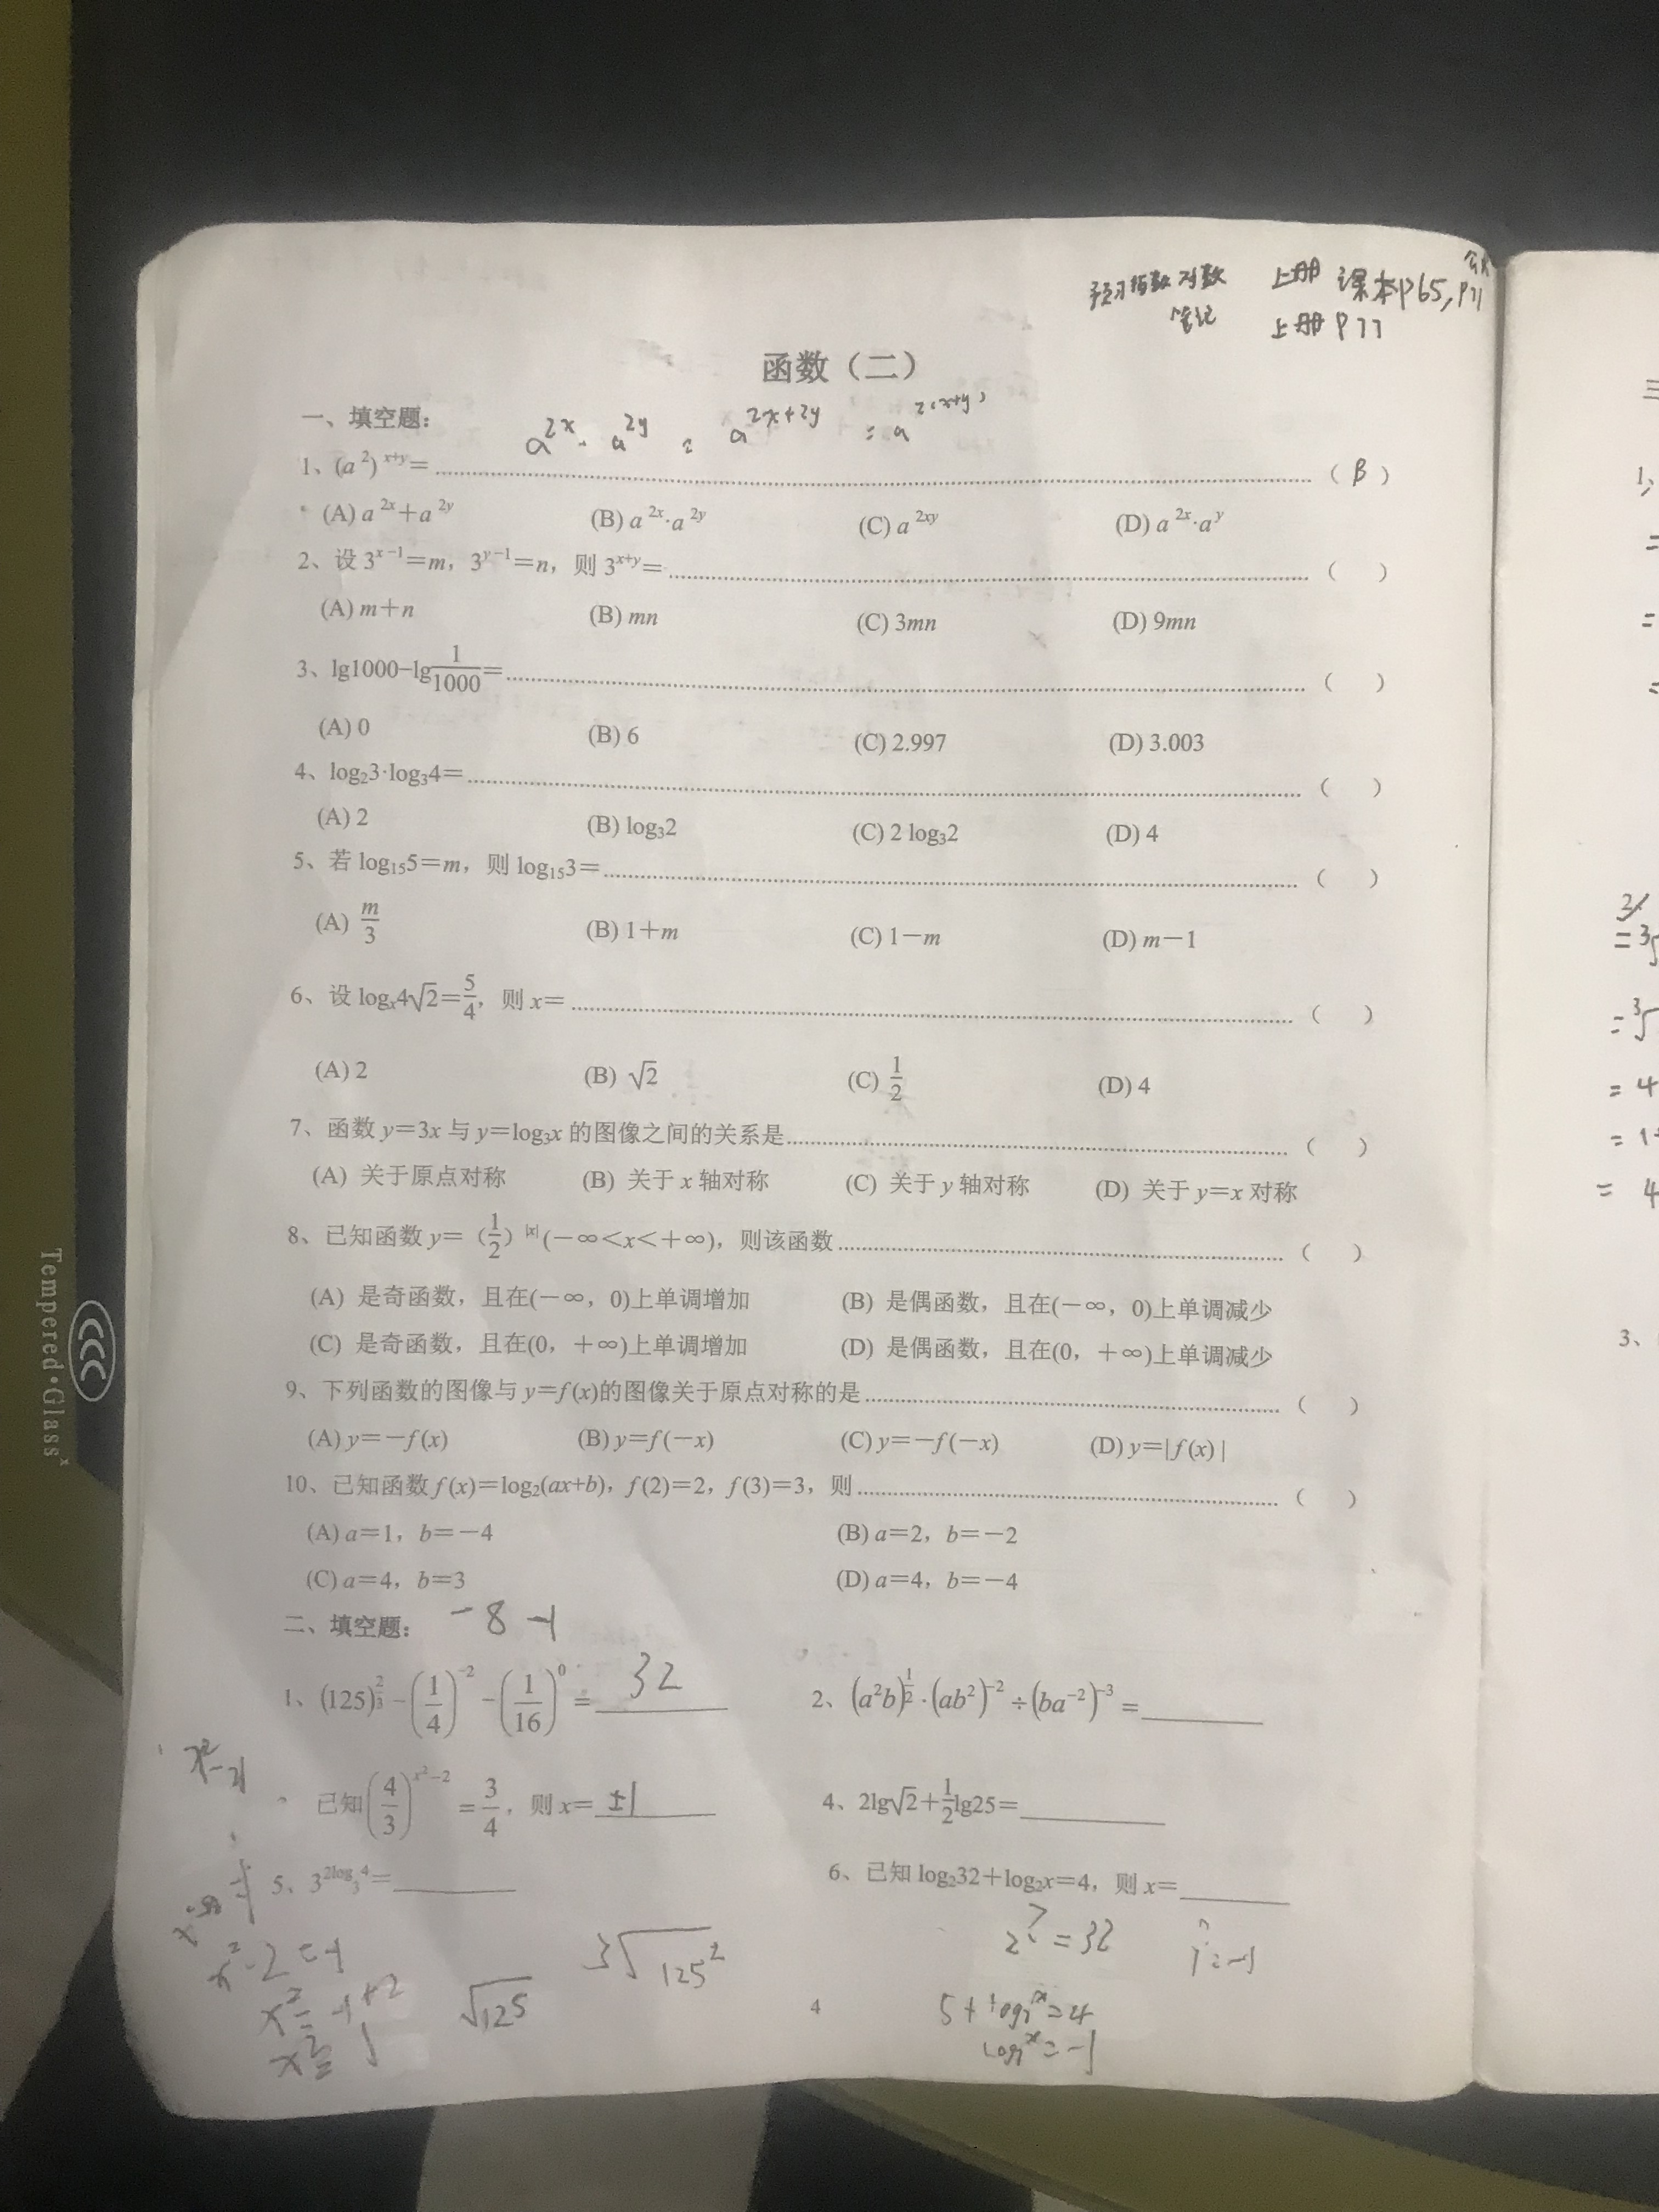 预习指数对数 上册 课本P65, P71
笔记 上册 P77
函数（二）
一、填空题：
a^2x · a^2y = a^2x+2y = a^2(x+y)
1、(a²)^x+y=……（ B ）
(A) a^2x+a^2y (B) a^2x·a^2y (C) a^2xy (D) a^2x·a^y
2、设 3^x-1=m，3^y-1=n，则 3^x+y=……（ ）
(A) m+n (B) mn (C) 3mn (D) 9mn
3、lg1000-lg 1/1000=……（ ）
(A) 0 (B) 6 (C) 2.997 (D) 3.003
4、log₂3·log₃4=……（ ）
(A) 2 (B) log₃2 (C) 2 log₃2 (D) 4
5、若 log₁₅5=m，则 log₁₅3=……（ ）
(A) m/3 (B) 1+m (C) 1-m (D) m-1
6、设 logₓ4√2=5/4，则 x=……（ ）
(A) 2 (B) √2 (C) 1/2 (D) 4
7、函数 y=3x 与 y=log₃x 的图像之间的关系是……（ ）
(A) 关于原点对称 (B) 关于 x 轴对称 (C) 关于 y 轴对称 (D) 关于 y=x 对称
8、已知函数 y=（1/2）^|x| (-∞<x<+∞)，则该函数……（ ）
(A) 是奇函数，且在(-∞，0)上单调增加 (B) 是偶函数，且在(-∞，0)上单调减少
(C) 是奇函数，且在(0，+∞)上单调增加 (D) 是偶函数，且在(0，+∞)上单调减少
9、下列函数的图像与 y=f(x)的图像关于原点对称的是……（ ）
(A) y=-f(x) (B) y=f(-x) (C) y=-f(-x) (D) y=|f(x)|
10、已知函数 f(x)=log₂(ax+b)，f(2)=2，f(3)=3，则……（ ）
(A) a=1，b=-4 (B) a=2，b=-2
(C) a=4，b=3 (D) a=4，b=-4
二、填空题： -8 -1
1、(125)^2/3-(1/4)^-2-(1/16)^0= 32 2、(a²b)^1/2·(ab²)^-2÷(ba^-2)^-3=____
已知(4/3)^x²-2=3/4，则 x= ±1 4、2lg√2+1/2lg25=____
5、3^2log₃4=____ 6、已知 log₂32+log₂x=4，则 x=____
2^?=32
x²-2=-1
x²=-1+2
x²=1
√125
³√125²
5+log₂x=4
log₂x=-1
4
Tempered·Glass
CCC
1、
3、